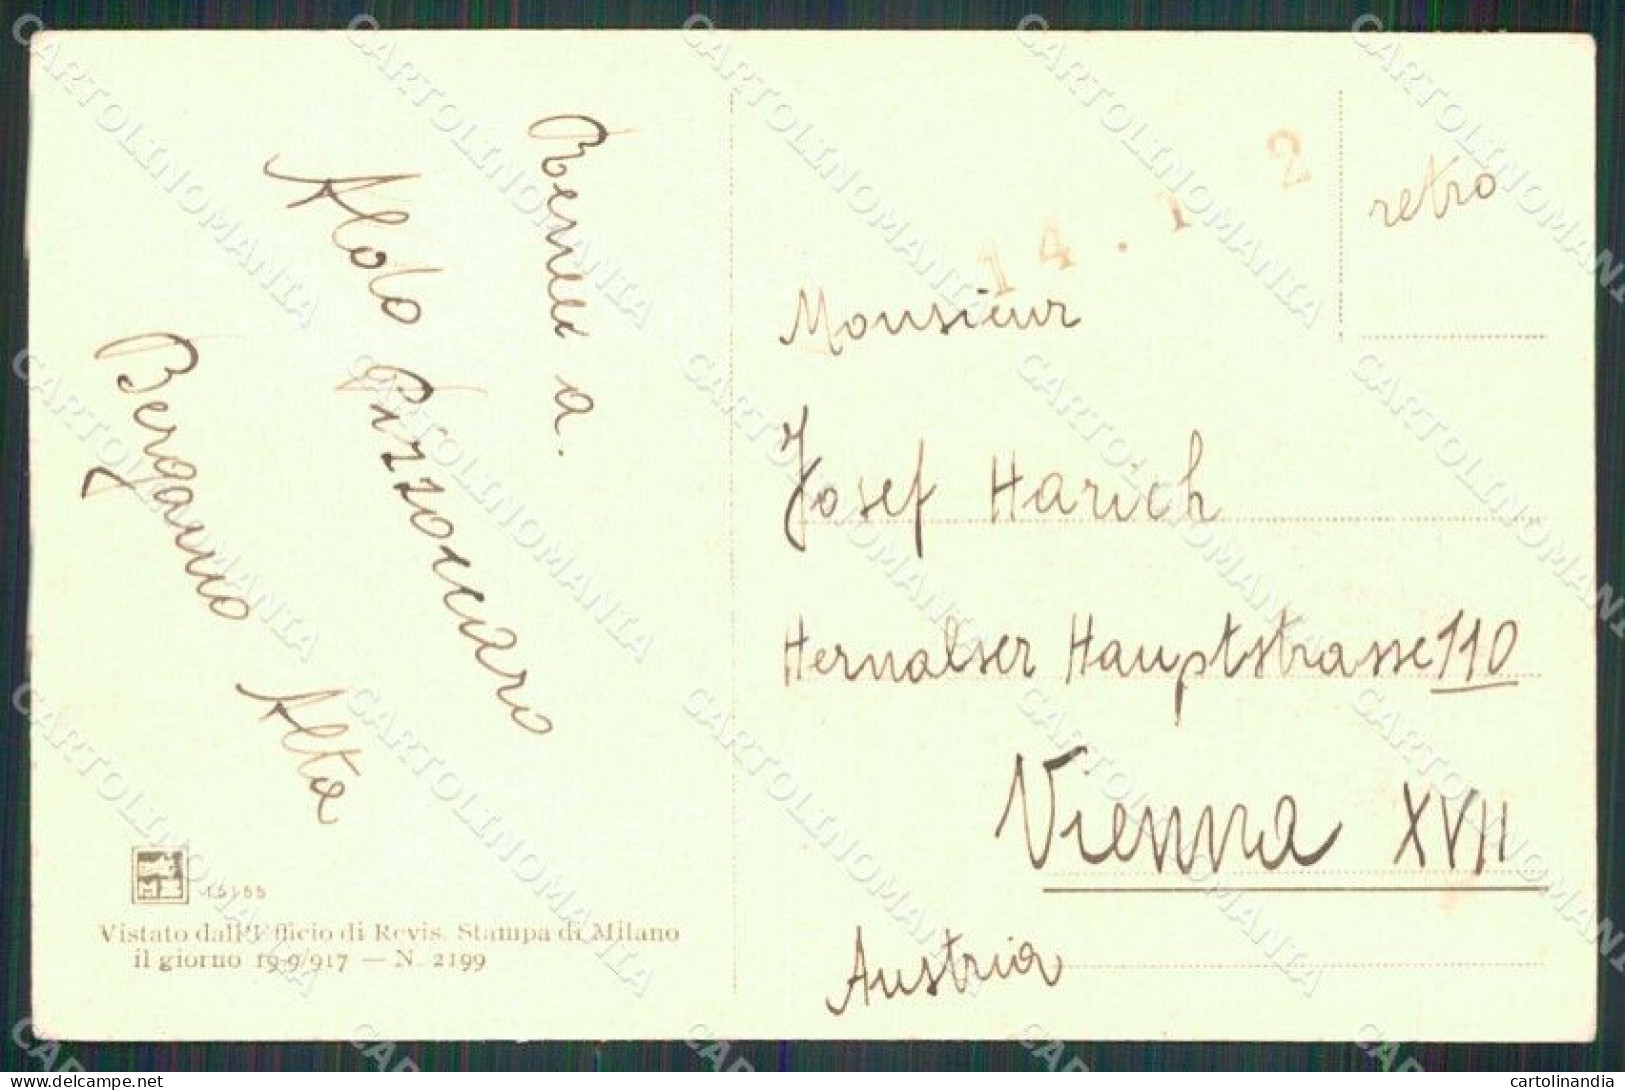 Aldo Pizzoccaro
Bergamo Alta
15155
Vistato dall'Ufficio di Revis. Stampa di Milano
il giorno 19-9/917 — N. 2199
retro
14.1 2
Monsieur
Josef Harich
Hernalser Hauptstrasse 110
Vienna XVII
Austria
CARTOLINOMANIA
delcampe.net
cartolinandia